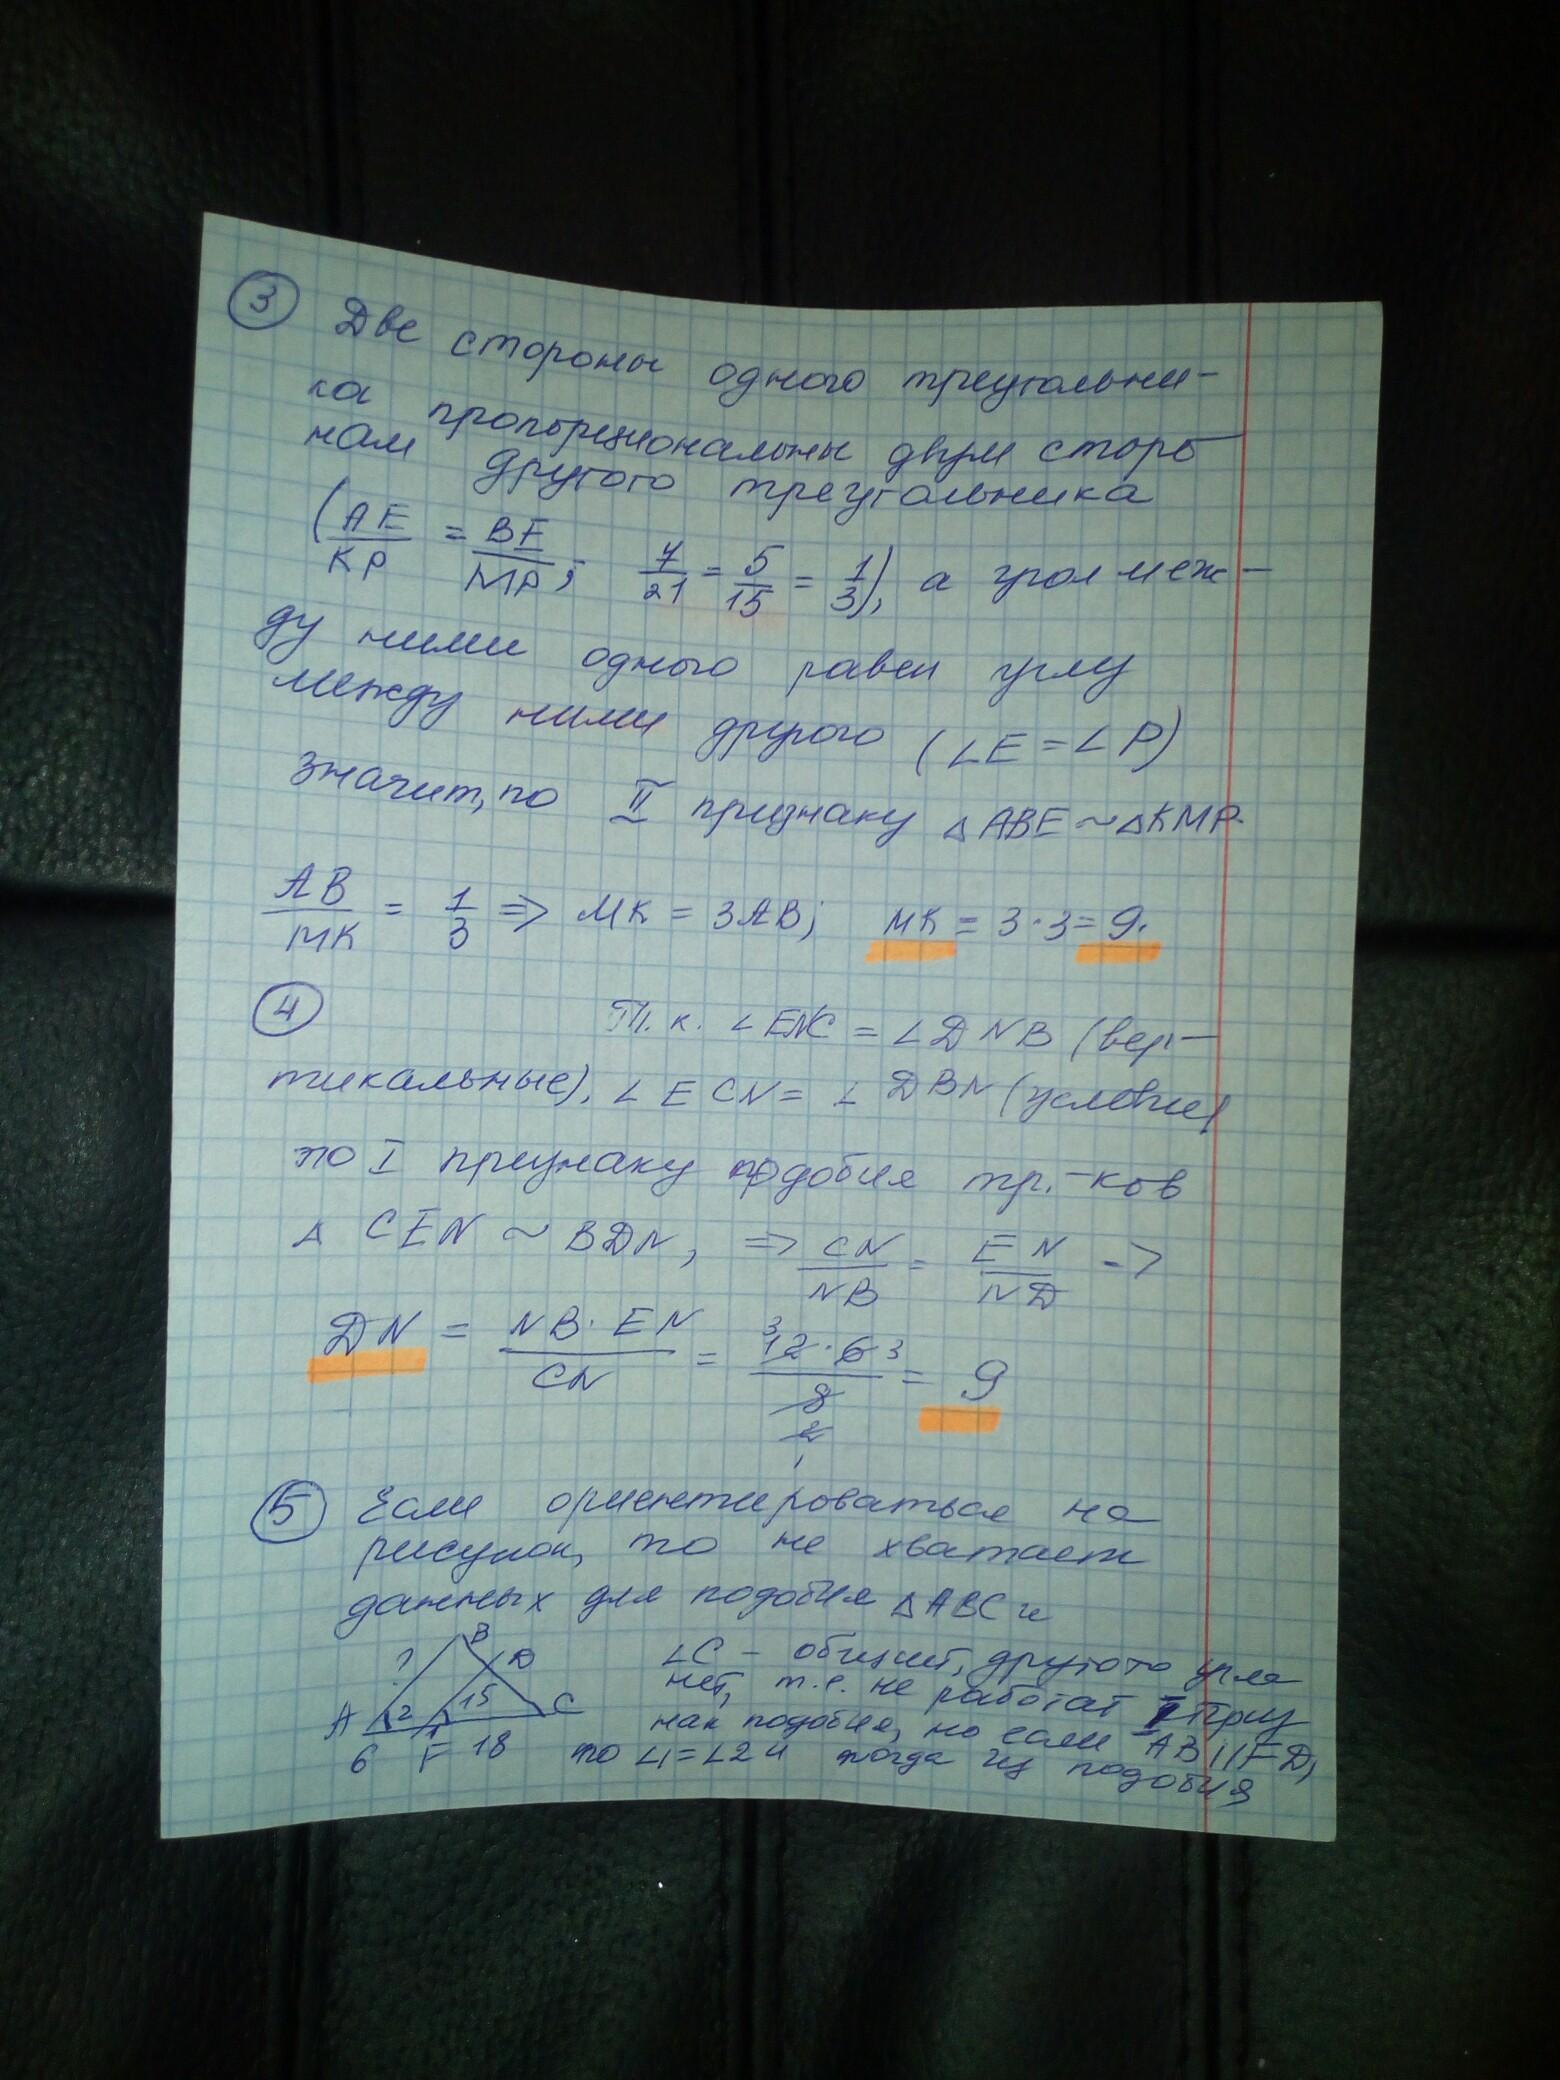 3 Две стороны одного треугольни-
ка пропорциональны двум сторо
нам другого треугольника
(AE/KP = BE/MP; 7/21 = 5/15 = 1/3), а угол меж-
ду ними одного равен углу
между ними другого (∠E = ∠P)
значит, по II признаку △ABE ~ △KMP.
AB/MK = 1/3 => MK = 3AB; MK = 3·3 = 9.
4 Т.к. ∠ENC = ∠DNB (вер-
тикальные), ∠ECN = ∠DBN (условие)
то I признаку подобия тр.-ков
△ CEN ~ BDN, => CN/NB = EN/ND =>
DN = NB·EN/CN = 12·6/8 = 9
3 3 2
5 Если ориентироваться на
рисунок, то не хватает
данных для подобия △ABC и
∠C - общий, другого угла
нет, т.е. не работат I приз
нак подобия, но если AB||FD,
то ∠1=∠2 и тогда из подобия
B
? D
A 2 1 15 C
6 F 18